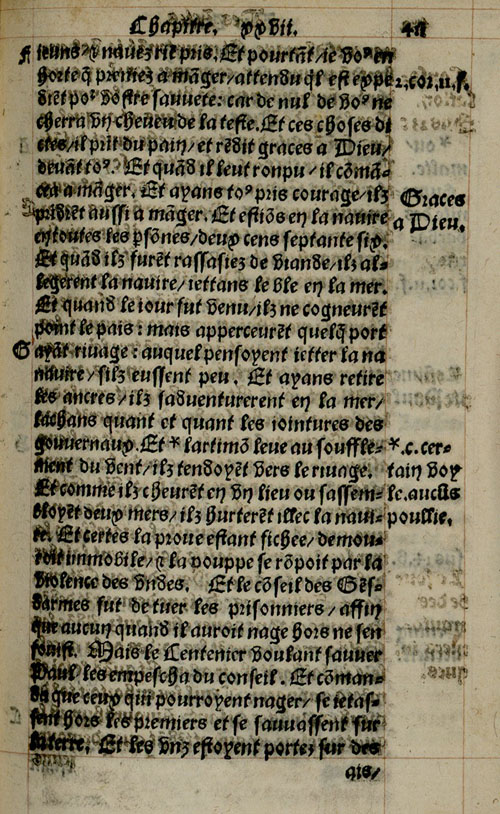 Chapitre. xxvii.
F ieuns/ & nauez riē pris. Et pourtāt/ ie voꝰ en
horte q̄ prenez a māger/ attendu q̄l est expe
diēt poꝛ vostre sauuete: car de nul de voꝰ ne
cherra vn cheueu de la teste. Et ces choses di
ctes/ il prit du pain/ et rēdit graces a Dieu/
deuāt toꝰ. Et quād il leut ronpu/ il cōmā-
cea a māger. Et ayans toꝰ pris courage/ ilz
prindrēt aussi a māger. Et estiōs en la nauire
en toutes les ꝑsōnes/ deux cens septante six.
Et quād ilz furēt rassasiez de viande/ ilz al-
legerent la nauire/ iettans le ble en la mer.
Et quand le iour fut venu/ ilz ne cogneurēt
point le pais: mais apperceurēt quelq̄ port
G ayāt riuage: auquel pensoyent ietter la na
nauire/ silz eussent peu. Et ayans retire
les ancres/ ilz saduenturerent en la mer/
lachans quant et quant les iointures des
gouuernaux. Et * lartimō leue au souffle-
ment du vent/ ilz tendoyēt vers le riuage.
Et comme ilz cheurēt en vn lieu ou sassem-
bloyēt deux mers/ ilz hurterēt illec la naui-
re. Et certes la proue estant fichee/ demou-
roit immobile/ & la pouppe se rōpoit par la
violence des vndes. Et le cōseil des Gēs-
darmes fut de tuer les prisonniers/ affin
que aucun quand il auroit nage hors ne sen
fouist. Mais le Centenier voulant sauuer
Paul les empescha du conseil. Et cōman-
da que ceux qui pourroyent nager/ se ietas-
sent hors les premiers et se sauuassent sur
la terre. Et les vnz estoyent portez sur des
ais/
2, cor, 11, f.
Graces
a Dieu.
*. c. cer-
tain voy
le. aucūs
poullie.